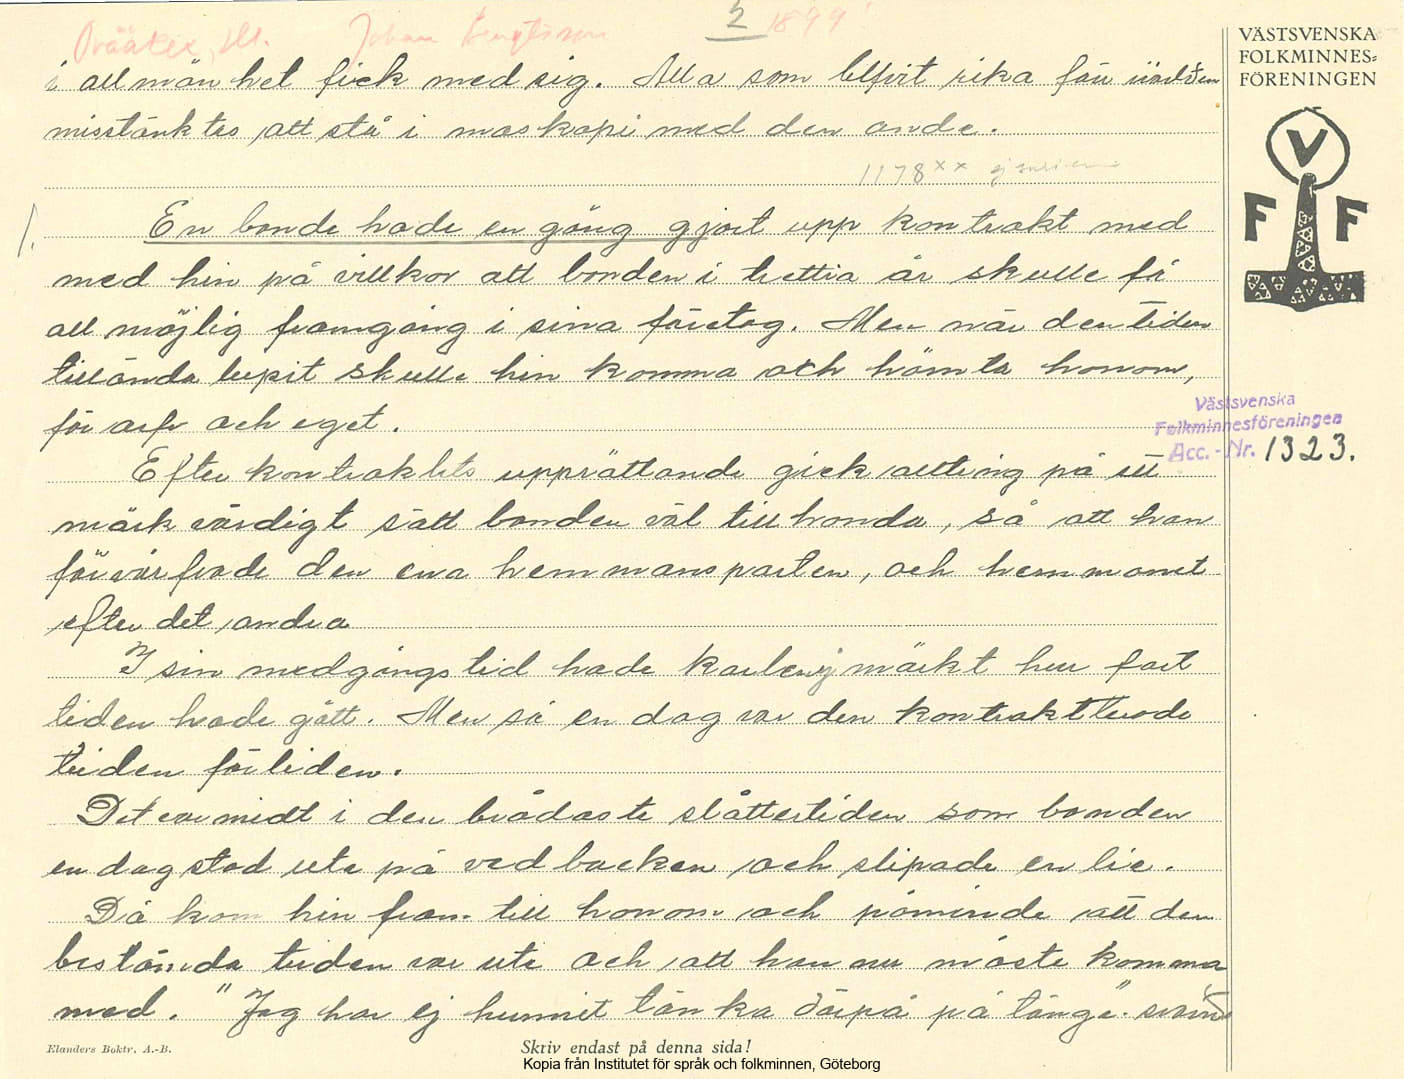 2 1899
VÄSTSVENSKA
FOLKMINNES=
FÖRENINGEN
V
F F
i allmänhet fick med sig. Alla som blifvit rika för världen
misstänktes att stå i maskopi med den onde.
1178 xx ej
1.
En bonde hade en gång gjort upp kontrakt med
med hin på villkor att bonden i trettia år skulle få
all möjlig framgång i sina företag. Men när den tiden
tilländalupit skulle hin komma och hämta honom,
för arfv och eget.
Västsvenska
Folkminnesföreningen
Acc.-Nr. 1323.
Efter kontraktets upprättande gick allting på ett
märkvärdigt sätt bonden väl tillhanda, så att han
förvärfvade den ena hemmansparten, och hemmanet
efter det andra
I sin medgångstid hade karlen ej märkt hur fort
tiden hade gått. Men så en dag var den kontrakterade
tiden förliden.
Det var midt i den brådaste slåttertiden som bonden
en dag stod ute på vedbacken och slipade en lie.
Då kom hin fram till honom och påminde att den
bestämda tiden var ute och att han nu måste komma
med. "Jag har ej hunnit tänka därpå på länge" svara
Elanders Boktr. A.-B.
Skriv endast på denna sida!
Kopia från Institutet för språk och folkminnen, Göteborg